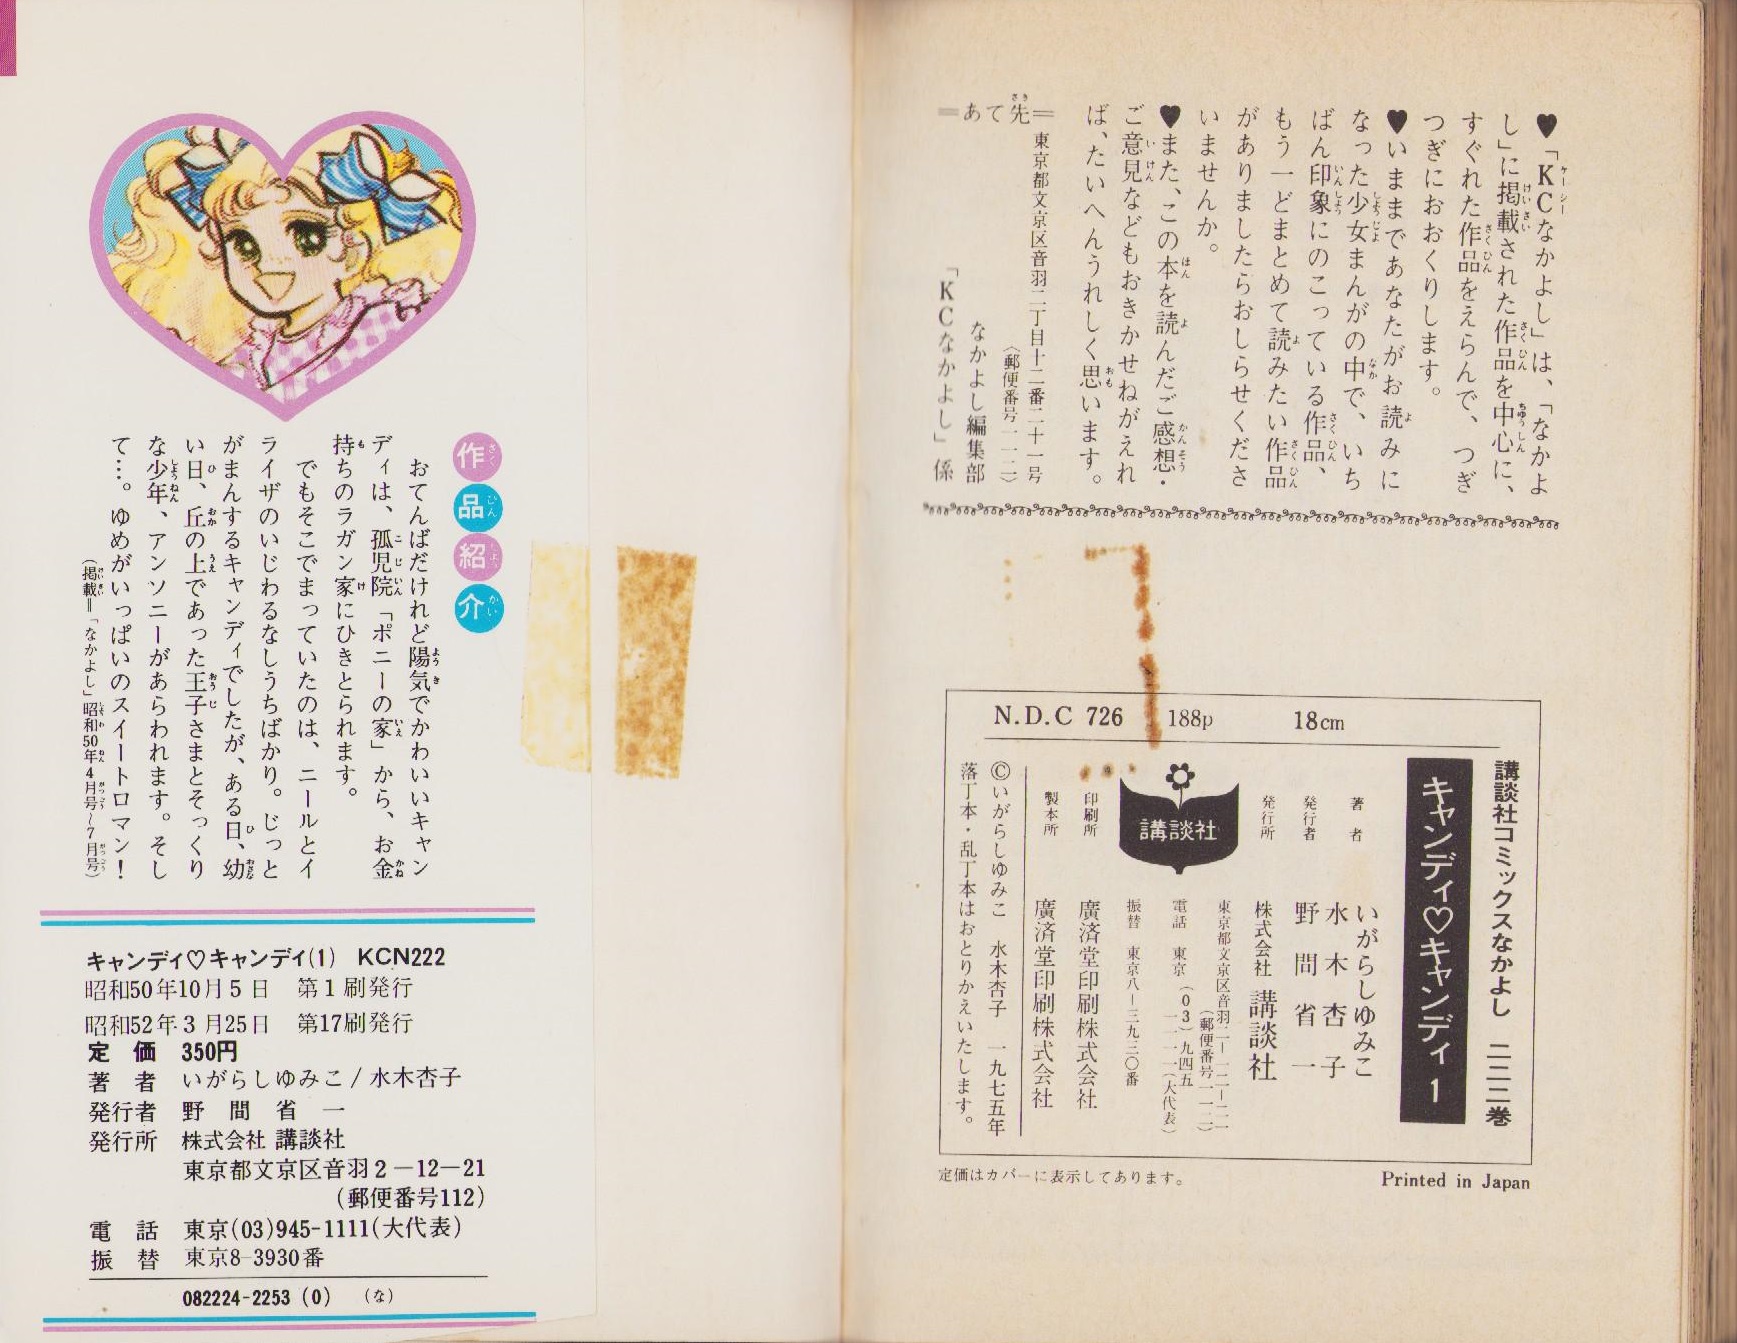 作品紹介
おてんばだけれど陽気でかわいいキャン
ディは、孤児院「ポニーの家」から、お金
持ちのラガン家にひきとられます。
でもそこでまっていたのは、ニールとイ
ライザのいじわるなしうちばかり。じっと
がまんするキャンディでしたが、ある日、幼
い日、丘の上であった王子さまとそっくり
な少年、アンソニーがあらわれます。そし
て…。ゆめがいっぱいのスイートロマン！
（掲載＝「なかよし」昭和50年4月号〜7月号）
キャンディ♡キャンディ(1) KCN222
昭和50年10月5日 第1刷発行
昭和52年3月25日 第17刷発行
定価 350円
著者 いがらしゆみこ/水木杏子
発行者 野間省一
発行所 株式会社 講談社
東京都文京区音羽2－12－21
(郵便番号112)
電話 東京(03)945-1111(大代表)
振替 東京8-3930番
082224-2253 (0) (な)
♥「KCなかよし」は、「なかよ
し」に掲載された作品を中心に、
すぐれた作品をえらんで、つぎ
つぎにおおくりします。
♥いままであなたがお読みに
なった少女まんがの中で、いち
ばん印象にのこっている作品、
もう一どまとめて読みたい作品
がありましたらおしらせくださ
いませんか。
♥また、この本を読んだご感想・
ご意見などもおきかせねがえれ
ば、たいへんうれしく思います。
＝あて先＝
東京都文京区音羽二丁目十二番二十一号
（郵便番号一一二）
なかよし編集部
「KCなかよし」係
N.D.C 726 188p 18cm
講談社コミックスなかよし 二二二巻
キャンディ♡キャンディ 1
著者 いがらしゆみこ
水木杏子
発行者 野間省一
発行所 株式会社 講談社
東京都文京区音羽二－一二－二一
（郵便番号一一二）
電話 東京（03）九四五
一一一一（大代表）
振替 東京八－三九三〇番
講談社
印刷所 廣済堂印刷株式会社
製本所 廣済堂印刷株式会社
©いがらしゆみこ 水木杏子 一九七五年
落丁本・乱丁本はおとりかえいたします。
定価はカバーに表示してあります。
Printed in Japan